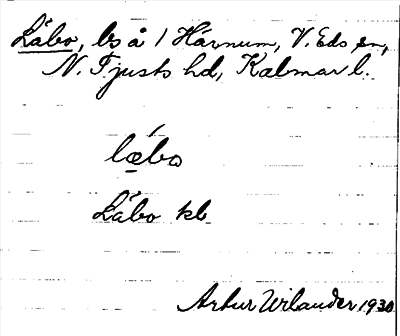 Låbo, ls å 1 Hårnum, V. Eds sn,
N. Tjusts hd, Kalmar l.
læbo
Låbo kb
Artur Wilander 1930